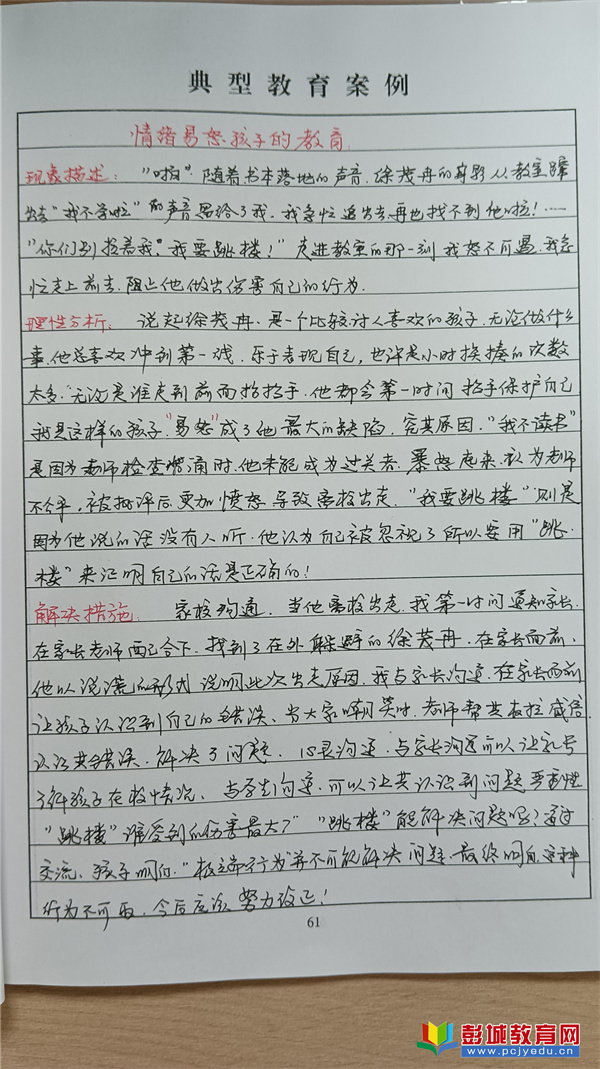 典型教育案例
情绪易怒孩子的教育
现象描述："啪" 随着书本落地的声音,徐茂冉的身影从教室蹿
出去"我不学啦"的声音留给了我,我急忙追出去,再也找不到他啦！……
"你们别拉着我,我要跳楼！"走进教室的那一刻我怒不可遏,我急
忙走上前去,阻止他做出伤害自己的行为.
理性分析：说起徐茂冉、是一个比较讨人喜欢的孩子,无论做什么
事,他总喜欢冲到第一线,乐于表现自己,也许是小时挨揍的次数
太多,无论是谁走到前面抬抬手,他都会第一时间抬手保护自己
就是这样的孩子"易怒"成了他最大的缺陷,究其原因,"我不读书"
是因为老师检查背诵时,他未能成为过关者,暴怒起来,认为老师
不公平,被批评后更加愤怒导致离校出走."我要跳楼"则是
因为他说的话没有人听,他认为自己被忽视了所以要用"跳
楼"来证明自己的话是正确的！
解决措施：家校沟通,当他离校出走,我第一时间通知家长.
在家长老师配合下,找到了在外躲避的徐茂冉,在家长面前,
他以说谎的形式说明此次出走原因,我与家长沟通,在家长面前
让孩子认识到自己的错误、当大家 时,老师帮其
认识其错误,解决了问题. 心灵沟通,与家长沟通可以让家长
了解孩子在校情况、与学生沟通,可以让其认识到问题严重性
"跳楼"谁受到的伤害最大？"跳楼"能解决问题吗？通过
交流、孩子明白,"极端行为"并不可能解决问题,最终明白,这种
行为不可取,今后应该努力改正！
61
彭城教育网
www.pcjyedu.cn